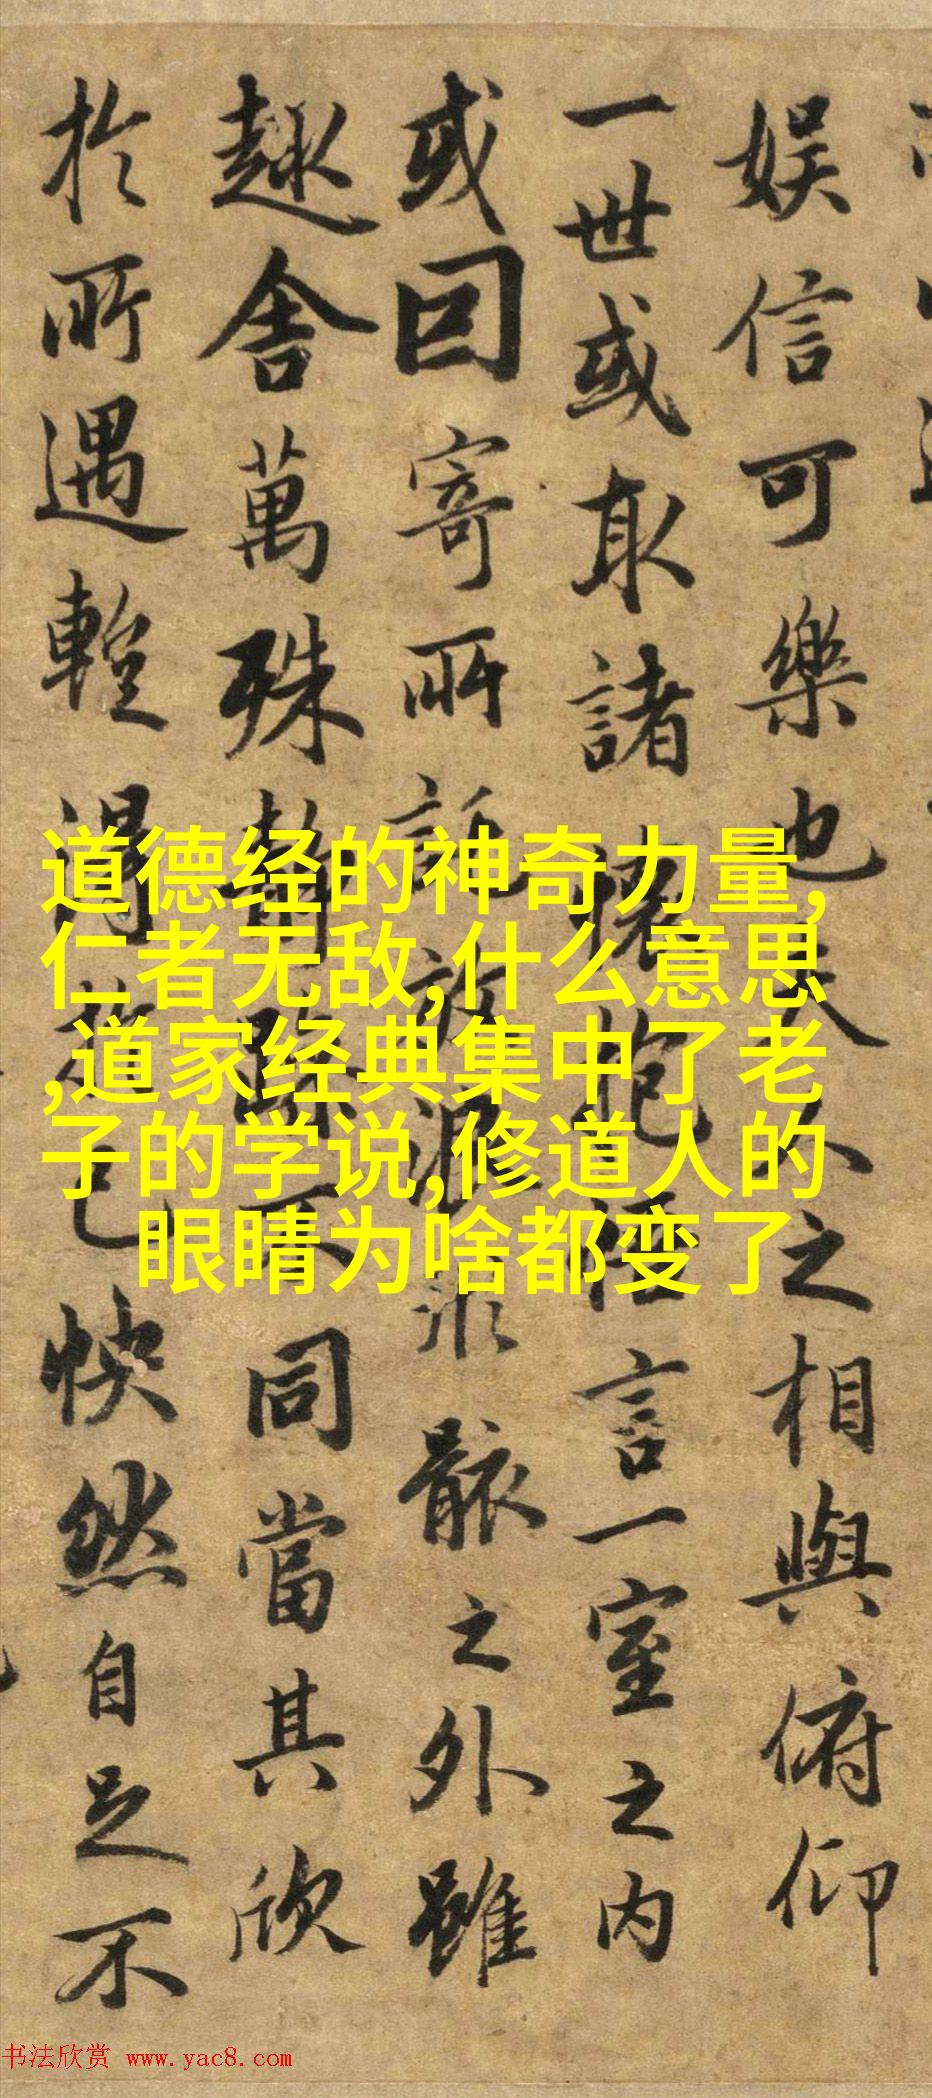 道德经的神奇力量,
仁者无敌,什么意思
,道家经典集中了老
子的学说,修道人的
眼睛为啥都变了
娱信可樂也夫人之相與俯仰
一世或取諸懷抱悟言一室之内
或因寄所託放浪形骸之外雖
趣舍萬殊静躁不同當其欣
於所遇暫得於己快然自足不
书法欣赏 www.yac8.com